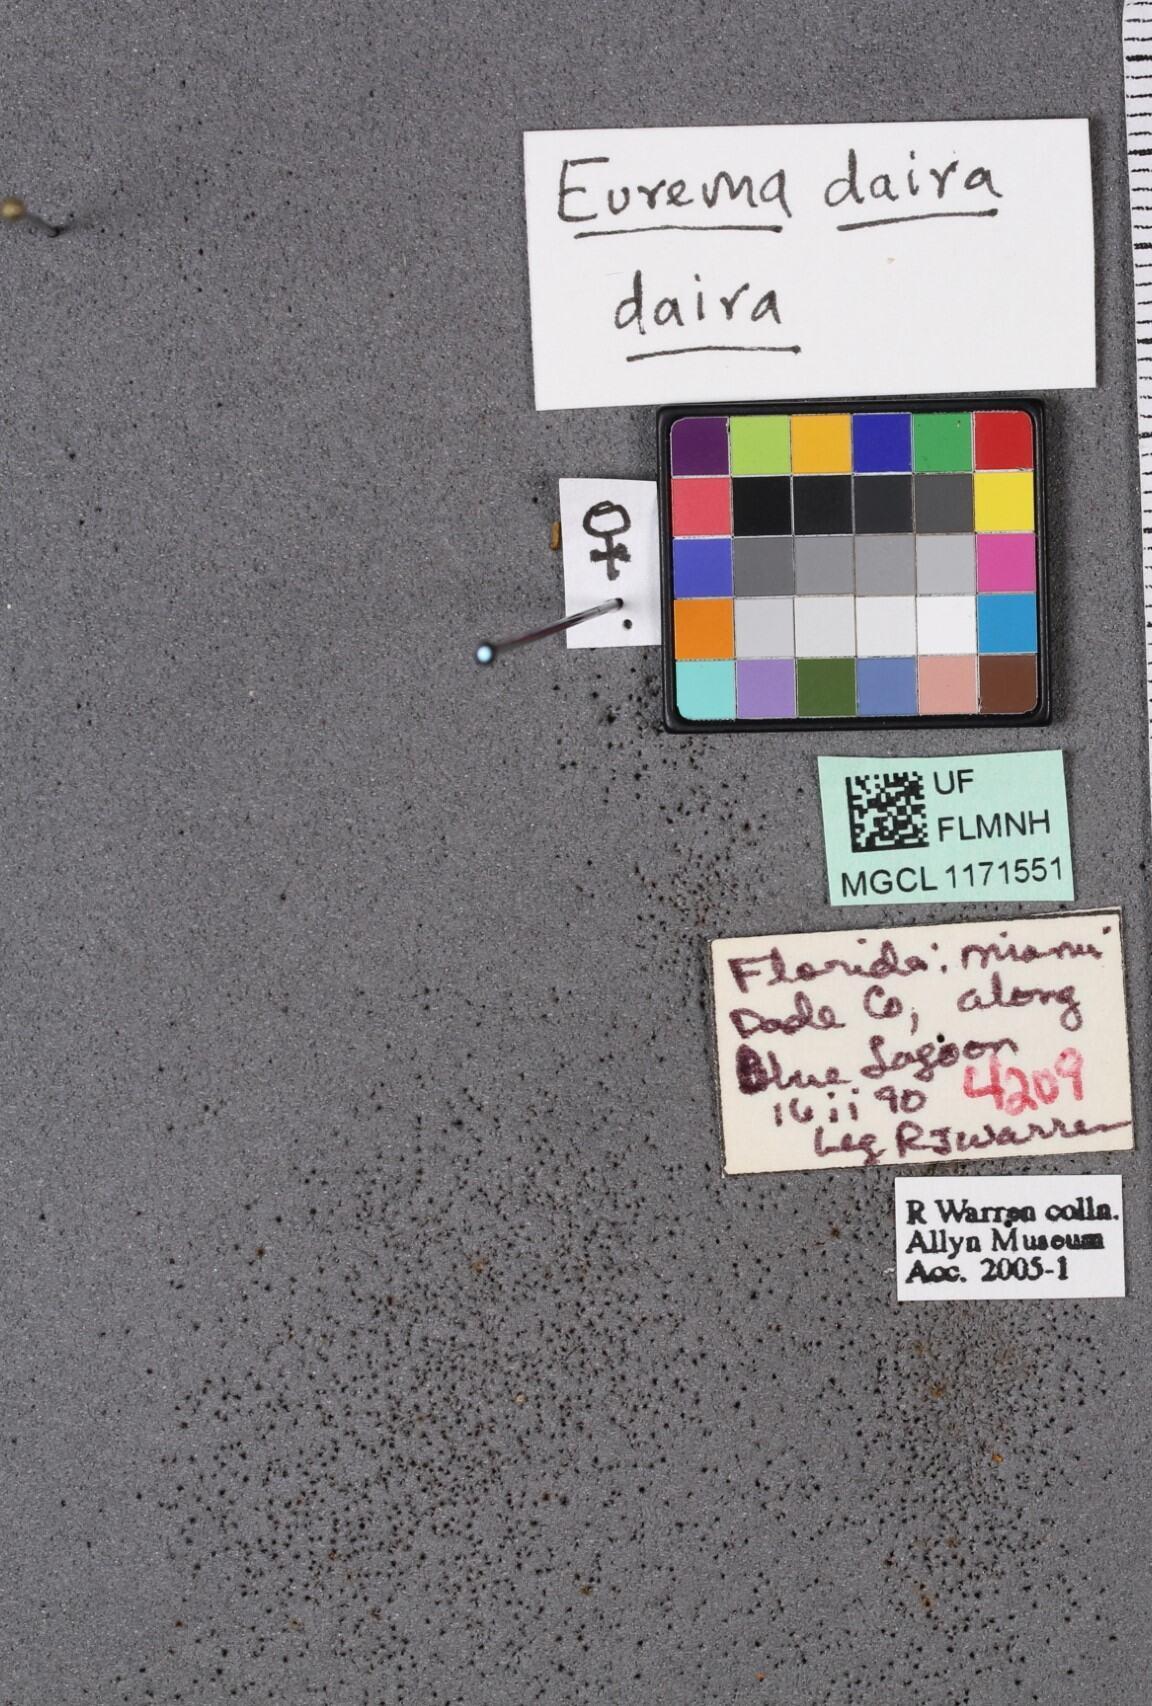 Eurema daira
daira
♀
UF
FLMNH
MGCL 1171551
Florida: miami
Dade Co, along
Blue Lagoon
16 ii 90 4209
Leg RJWarren
R Warren colln.
Allyn Museum
Acc. 2005-1